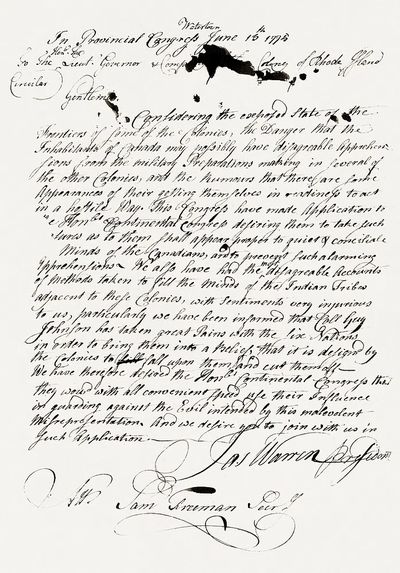 Watertown
In Provincial Congress June 15th 1775
To The Honble The Lieut. Governor & Company Colony of Rhode Island
Circular
Gentlemen
Considering the exposed State of the
Frontiers of some of the Colonies, the Danger that the
Inhabitants of Canada may possibly have disagreable Apprehen
sions from the military Preparations making in several of
the other Colonies, and the Rumours that there are some
Appearances of their getting themselves in readiness to act
in a hostile Way. This Congress have made Application to
e Honble Continental Congress desiring them to take such
sures as to them shall appear proper to quiet & conciliate
Minds of the Canadians, and to prevent such alarming
Apprehensions. We also have had the disagreable Accounts
of Methods taken to fill the Minds of the Indian Tribes
adjacent to these Colonies, with Sentiments very injurious
to us, particularly we have been informed that Coll Guy
Johnson has taken great Pains with the Six Nations
in order to bring them into a Belief, that it is design'd by
the Colonies to fall upon them and cut them off
We have therefore desired the Honle Continental Congress that
they woud with all convenient Speed use their Influence
in guarding against the Evil intended by this malevolent
Misrepresentation And we desire you to join with us in
such Application.
Jas Warren Presidnt
Attt Saml Freeman Secry